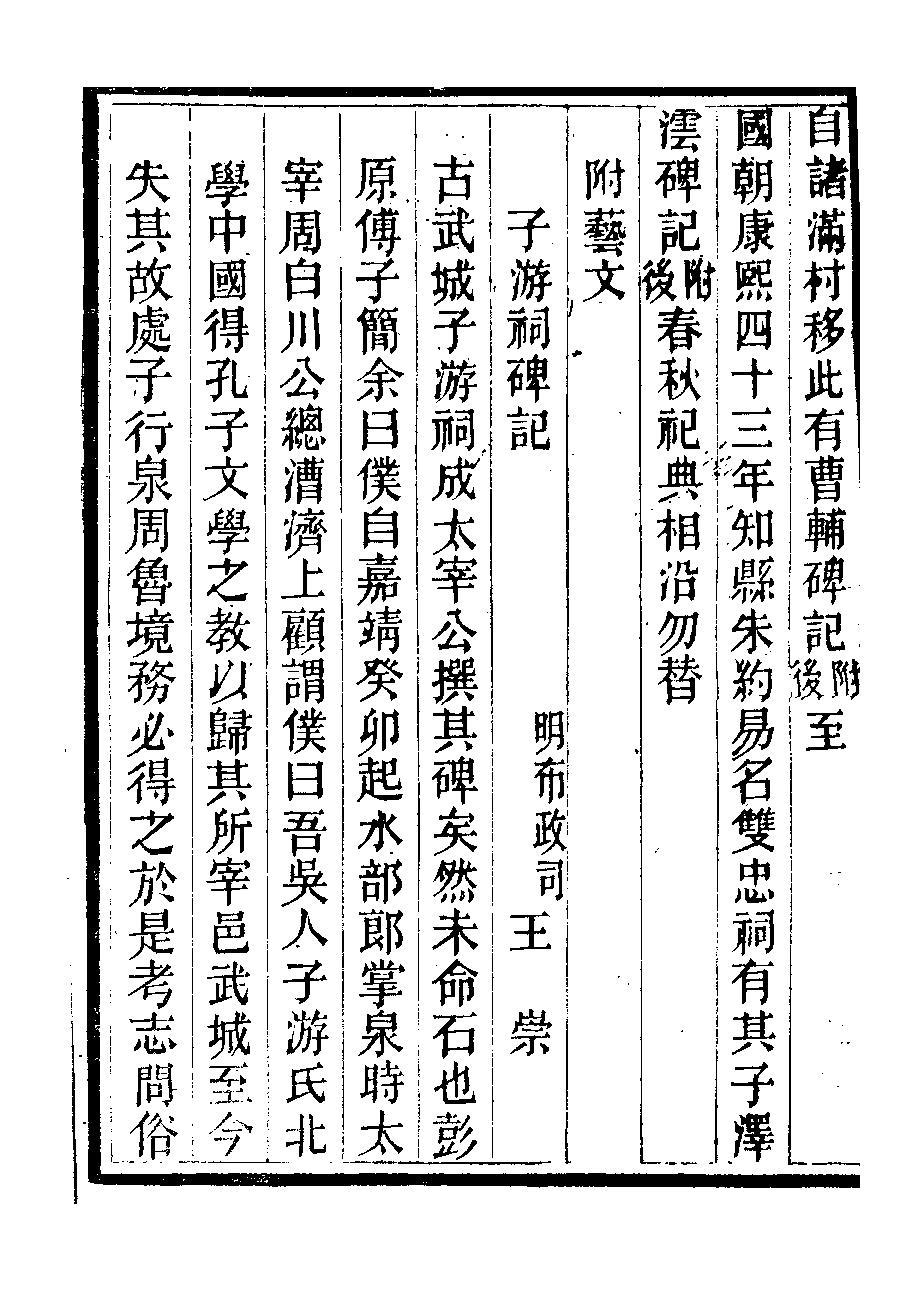 自諸滿村移此有曹輔碑記附後至
國朝康熙四十三年知縣朱約易名雙忠祠有其子澤
澐碑記附後春秋祀典相沿勿替
附藝文
子游祠碑記 明布政司 王 崇
古武城子游祠成太宰公撰其碑矣然未命石也彭
原傅子簡余曰僕自嘉靖癸卯起水部郎掌泉時太
宰周白川公總漕濟上顧謂僕曰吾吳人子游氏北
學中國得孔子文學之教以歸其所宰邑武城至今
失其故處子行泉周魯境務必得之於是考志問俗